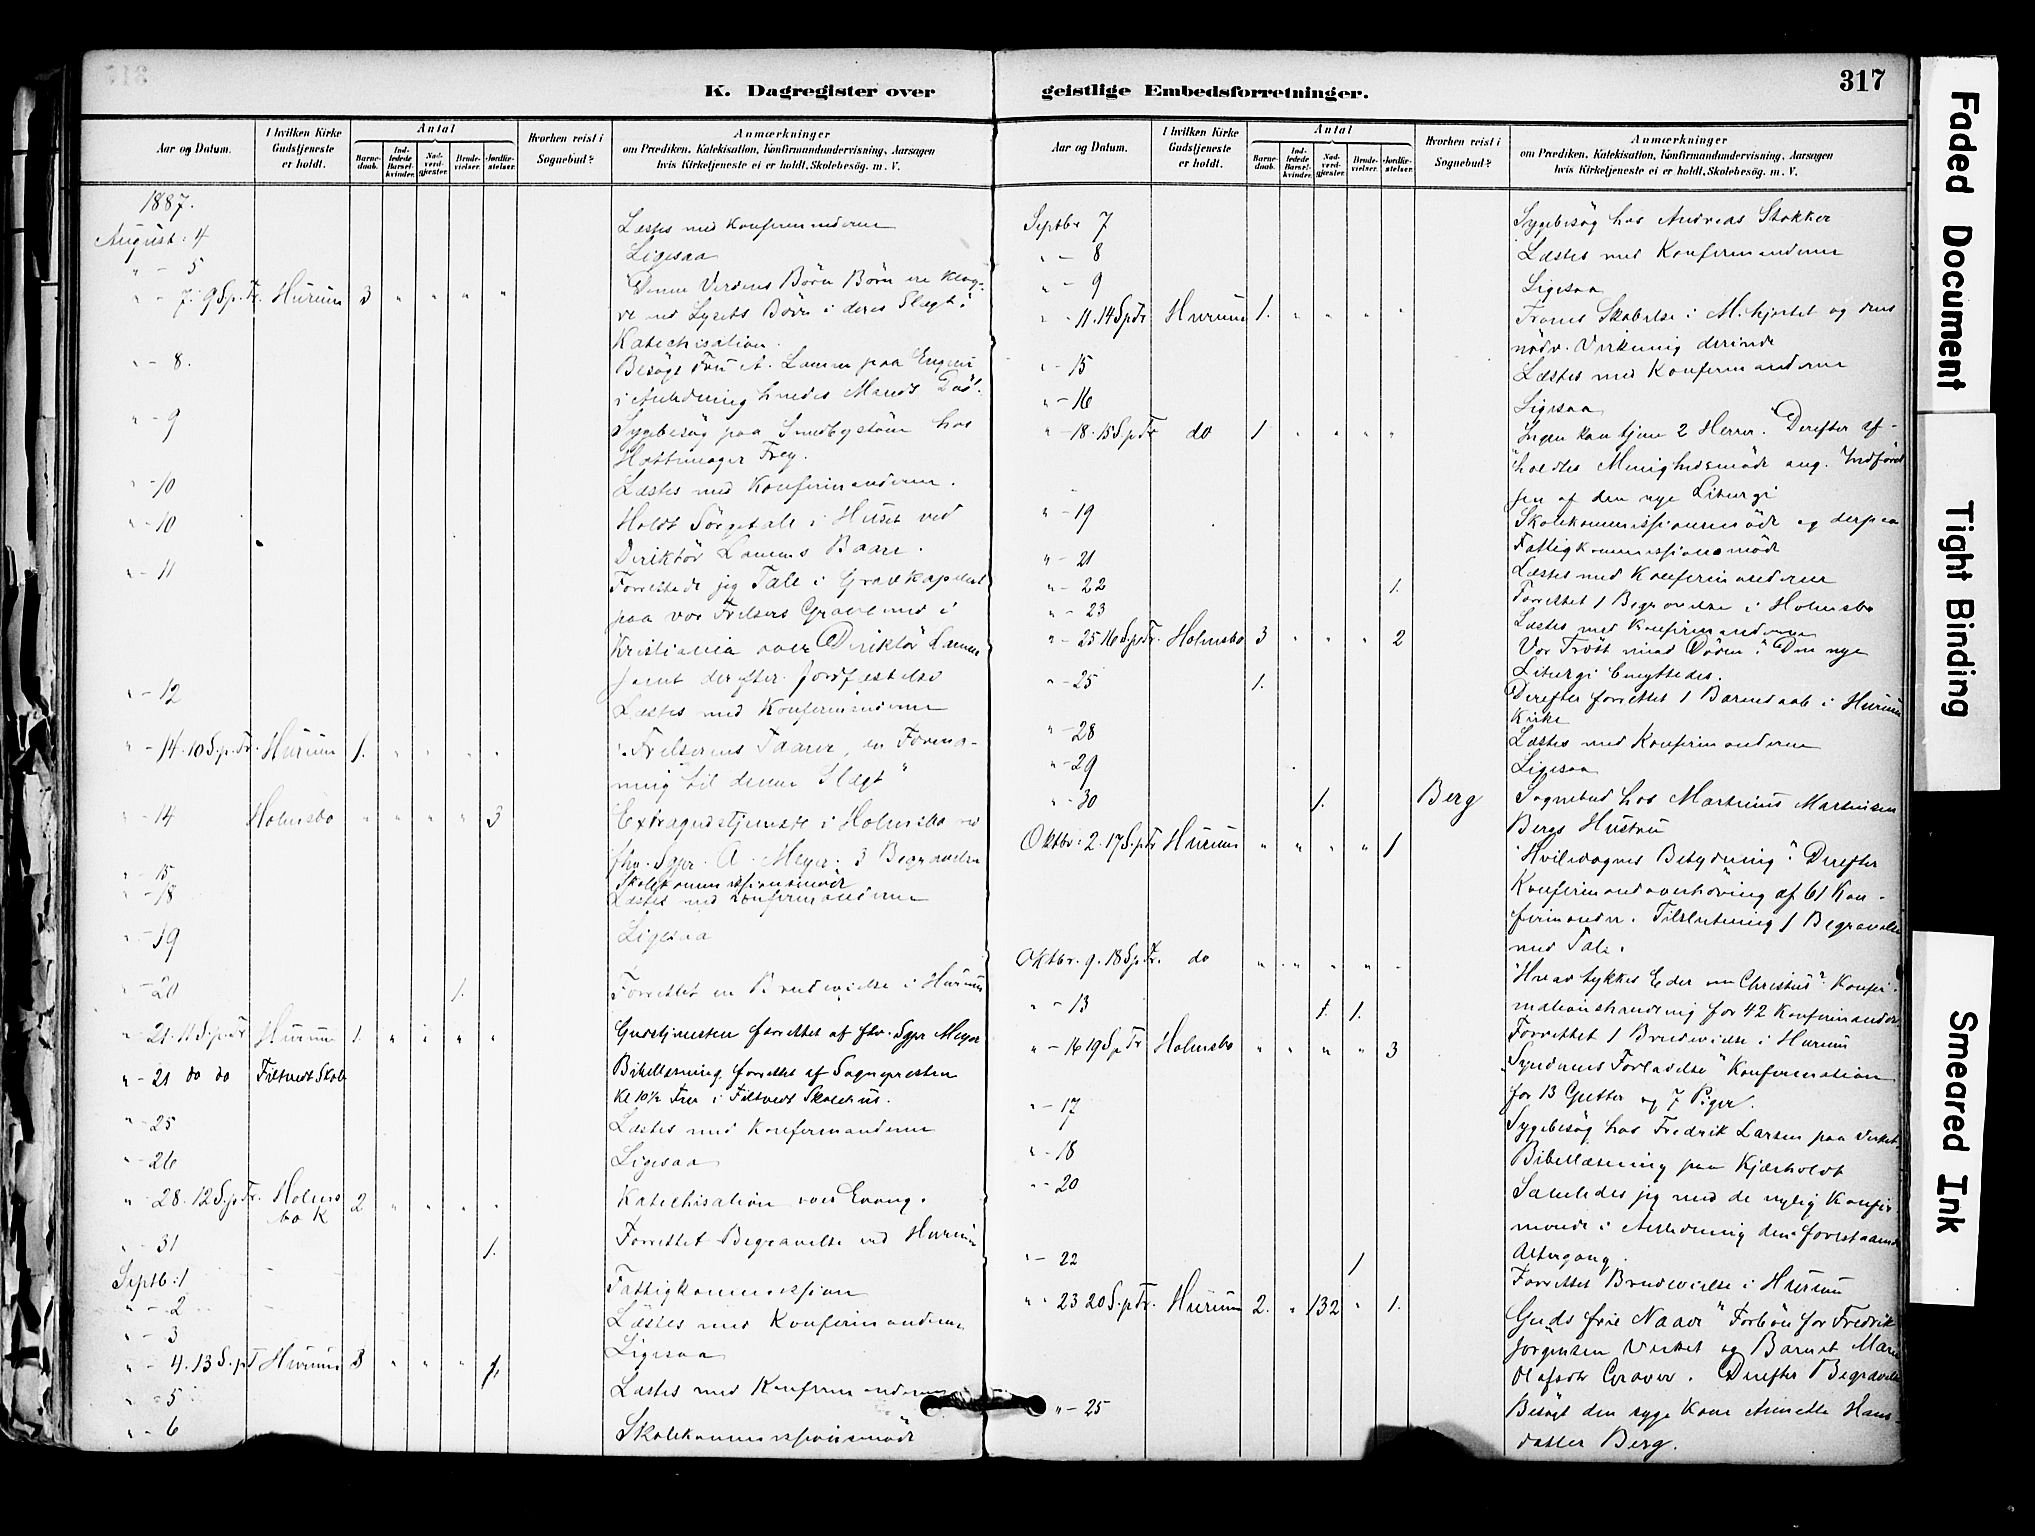 317
K. Dagregister over geistlige Embedsforretninger.
Aar og Datum.
I hvilken Kirke Gudstjeneste er holdt.
Antal
Barnedaab.
Indledede Barselkvinder.
Nadverdgjester.
Brudevielser.
Jordfæstelser.
Hvorhen reist i Sognebud?
Anmærkninger
om Prædiken, Katekisation, Konfirmandundervisning, Aarsagen
hvis Kirketjeneste ei er holdt, Skolebesøg. m. V.
1887.
August: 4 Læstes med Konfirmanderne
" - 5 Ligesaa
" - 7. 9 S. p. Tr. Hurum 3 " " " " Denne Verdens Børn ere klog-
re end Lysets Børn i deres Slegt".
Katechisation.
" - 8. Besøgt Fru A. Lamm paa Engene
i Anledning hendes Mands Død.
" - 9 Sygebesøg paa Smedbystøen hos
Hattemager Frey.
" - 10 Læstes med Konfirmanderne.
" - 10 Holdt Sørgetale i Huset ved
Direktør Lamms Baare.
" - 11 Forrettede jeg Tale i Gravkapellet
paa vor Frelsers Gravlund i
Kristiania over Direktør Lamm
samt derefter Jordfæstelse
" - 12 Læstes med Konfirmanderne
" - 14. 10 S. p. Tr. Hurum 1. " " " " "Frelserens Taarer, en Forma-
ning til denne Slegt"
" - 14 Holmsbo " " " " 3 Extragudstjeneste i Holmsbo ved
fhv. Sgpr. A. Meyer. 3 Begravelser
" - 15 Skolekommissionsmøde
" - 18 Læstes med Konfirmanderne
" - 19 Ligesaa
" - 20 1. Forrettet en Brudevielse i Hurum
" - 21. 11 S. p. Tr Hurum 1. " " " Gudstjenesten forrettet af fhv. Sgpr Meyer
" - 21 do do Filtvedt Skole Bibellæsning forrettet af Sognepresten
Kl 10½ Fm i Filtvedt Skolehus.
" - 25 Læstes med Konfirmanderne
" - 26 Ligesaa
" - 28. 12 S. p. Tr. Holmsbo K 2 " " " " Katechisation over Evang.
" - 31 1. Forrettet Begravelse ved Hurum
Septb: 1 Fattigkommission
" - 2 Læstes med Konfirmanderne
" - 3 Ligesaa
" - 4. 13 S. p T Hurum 3 " " " 1.
" - 5 Læstes med Konfirmanderne
" - 6 Skolekommissionsmøde
K. Dagregister over geistlige Embedsforretninger.
Aar og Datum.
I hvilken Kirke Gudstjeneste er holdt.
Antal
Barnedaab.
Indledede Barselkvinder.
Nadverdgjester.
Brudevielser.
Jordfæstelser.
Hvorhen reist i Sognebud?
Anmærkninger
om Prædiken, Katekisation, Konfirmandundervisning, Aarsagen
hvis Kirketjeneste ei er holdt, Skolebesøg. m. V.
Septbr 7 Sygebesøg hos Andreas Stokker
" - 8 Læstes med Konfirmanderne
" - 9 Ligesaa
" - 11. 14 S p Tr Hurum 1. " " " " Troens Skabelse i M.hjertet og dens
nødv. Virkning derinde
" - 15 Læstes med Konfirmanderne
" - 16 Ligesaa
" - 18. 15 S. p Tr do 1 " " " " "Ingen kan tjene 2 Herrer." Derefter af-
holdtes Menighedsmøde ang. Indførel
sen af den nye Liturgi
" - 19 Skolekommissionsmøde og derpaa
Fattigkommissionsmøde
" - 21 Læstes med Konfirmanderne
" - 22 1. Forrettet 1 Begravelse i Holmsbo
" - 23 Læstes med Konfirmanderne
" - 25 16 S. p Tr. Holmsbo 3 " " " 2 Vor Trøst mod Døden". Den nye
Liturgi benyttedes.
" - 25 1. Derefter forrettet 1 Barnedaab i Hurum
Kirke
" - 28 Læstes med Konfirmanderne
" - 29 Ligesaa
" - 30 1. Berg Sognebud hos Martinius Martinsen
Bergs Hustru
Oktbr: 2. 17 S. p Tr Hurum " " " " 1 "Hviledagens Betydning". Derefter
Konfirmandoverhøring af 61 Kon-
firmander. Tilslutning 1 Begravelse
med Tale.
Oktbr. 9. 18 S p Tr. do " " " " " "Hvad tykkes Eder om Christus" Konfir-
mationshandling for 42 Konfirmander
" - 13 1. 1. Forrettet 1 Brudevielse i Hurum
" - 16 19 S p Tr Holmsbo " " " " 3 "Syndernes Forladelse" Konfirmation
for 13 Gutter og 7 Piger.
" - 17 Sygebesøg hos Fredrik Larsen paa Verket
" - 18 Bibellæsning paa Kjærholdt
" - 20 Samledes jeg med de nylig Konfir
merede i Anledning den forestaaende
Altergang.
" - 22 1 Forrettet Brudevielse i Hurum
" - 23 20 S. p Tr. Hurum 2. " 132 " 1. Guds frie Naade" Forbøn for Fredrik
Jørgensen Verket og Barnet Maren
Olafsdtr Graver. Derefter Begravelse
" - 25 Besøgt den syge Kone Annette Hans-
datter Berg.
Faded Document
Tight Binding
Smeared Ink